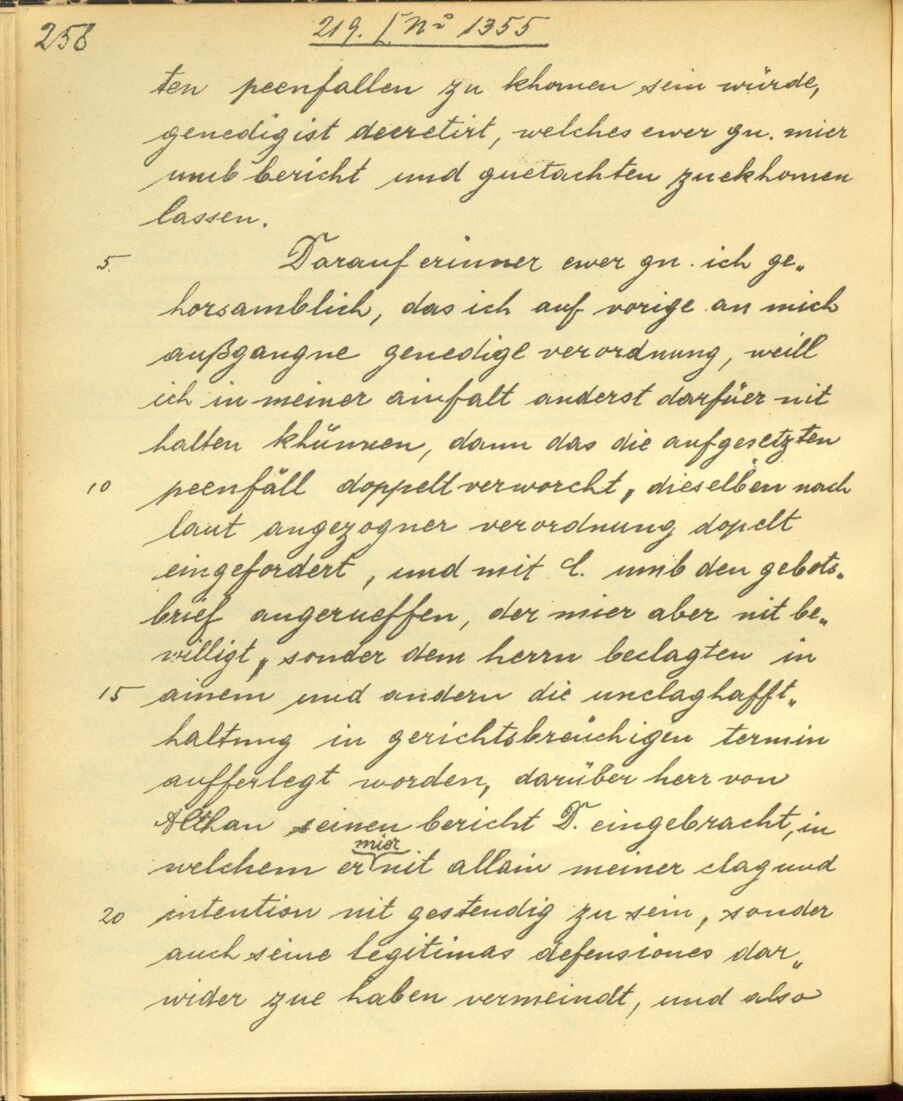 258
219. I, No 1355
ten peenfallen zu khomen sein würde,
genedigist decretirt, welches ewer gn. mier
umb bericht und guetachten zuekhomen
lassen.
5. Darauf erinner ewer gn. ich ge„
horsamblich, das ich auf vorige an mich
außgangne genedige verordnung, weill
ich in meiner ainfalt anderst darfüer nit
halten khünnen, dann das die aufgesetzten
10 peenfäll doppelt verworcht, dieselben nach
laut angezogner verordnung dopelt
eingefordert, und mit C. umb den gebots„
brief angerueffen, der mier aber nit be„
willigt, sonder dem herrn beclagten in
15 ainem und andern die unclaghafft„
haltung in gerichtsbreüchigen termin
aufferlegt worden, darüber herr von
Althan seinen bericht D. eingebracht, in
welchem er mier nit allain meiner clag und
20 intention nit gestendig zu sein, sonder
auch seine legitimas defensiones dar„
wider zue haben vermeindt, und also